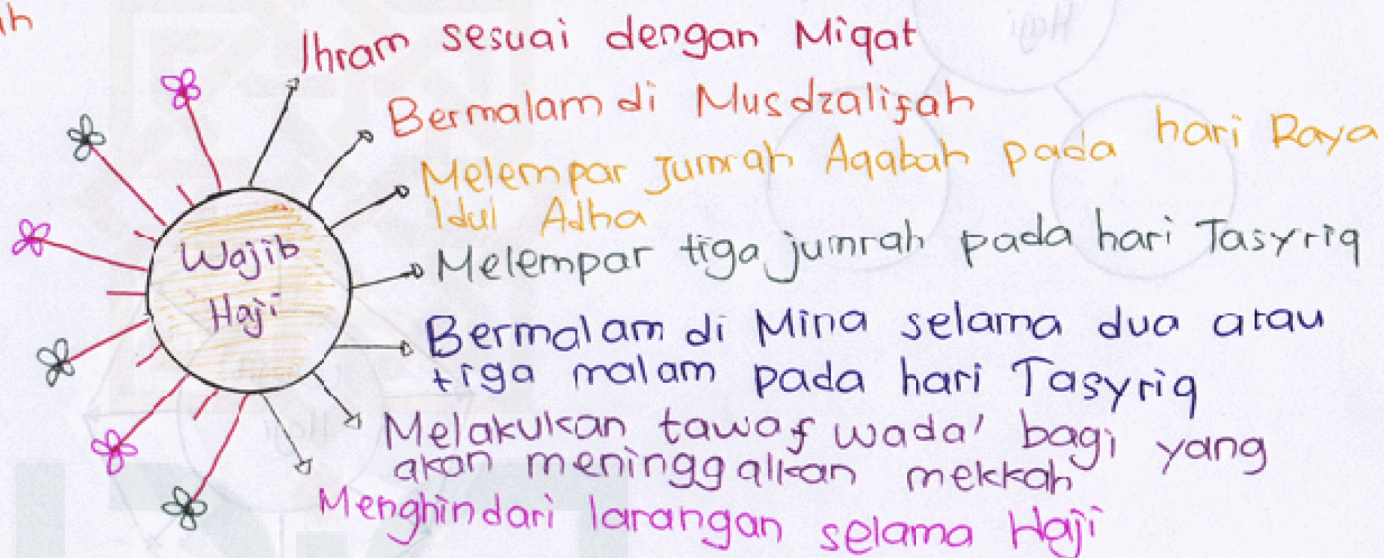 Ihram sesuai dengan Miqat
Bermalam di Musdzalifah
Melempar Jumrah Aqabah pada hari Raya
Idul Adha
Melempar tiga jumrah pada hari Tasyriq
Wajib
Haji
Bermalam di Mina selama dua atau
tiga malam pada hari Tasyriq
Melakukan tawaf wada' bagi yang
akan meninggalkan mekkah
Menghindari larangan selama Haji